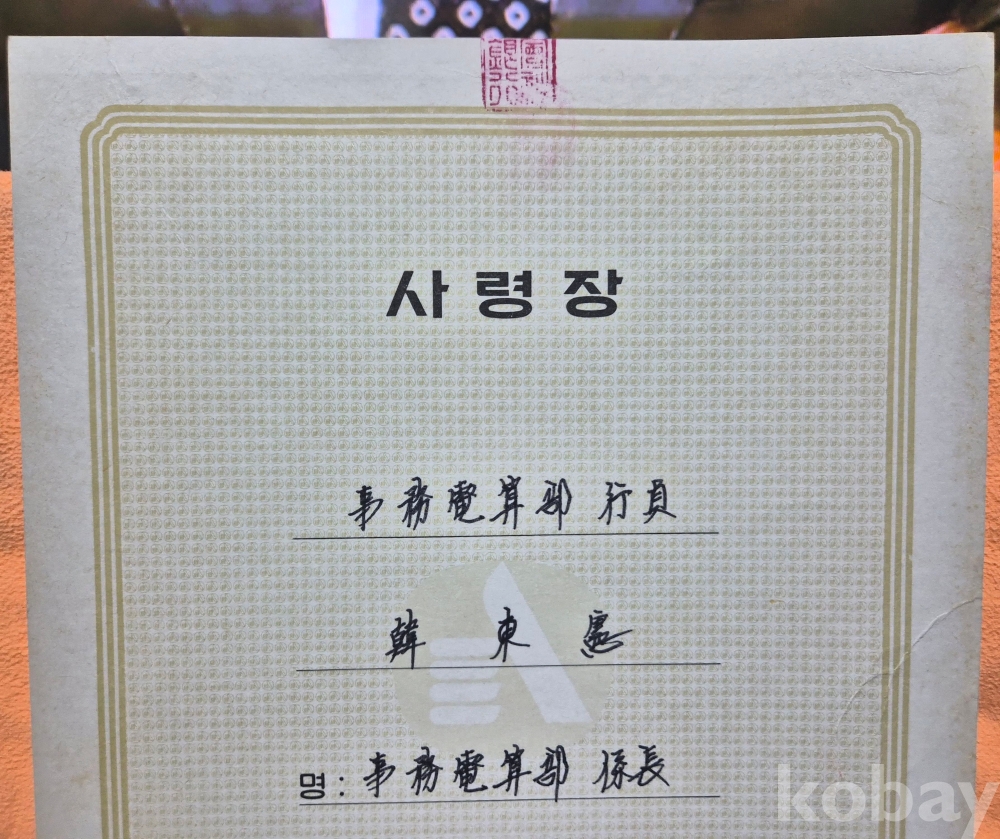 사령장
事務電算部 行員
韓 東
명 : 事務電算部 係長
kobay